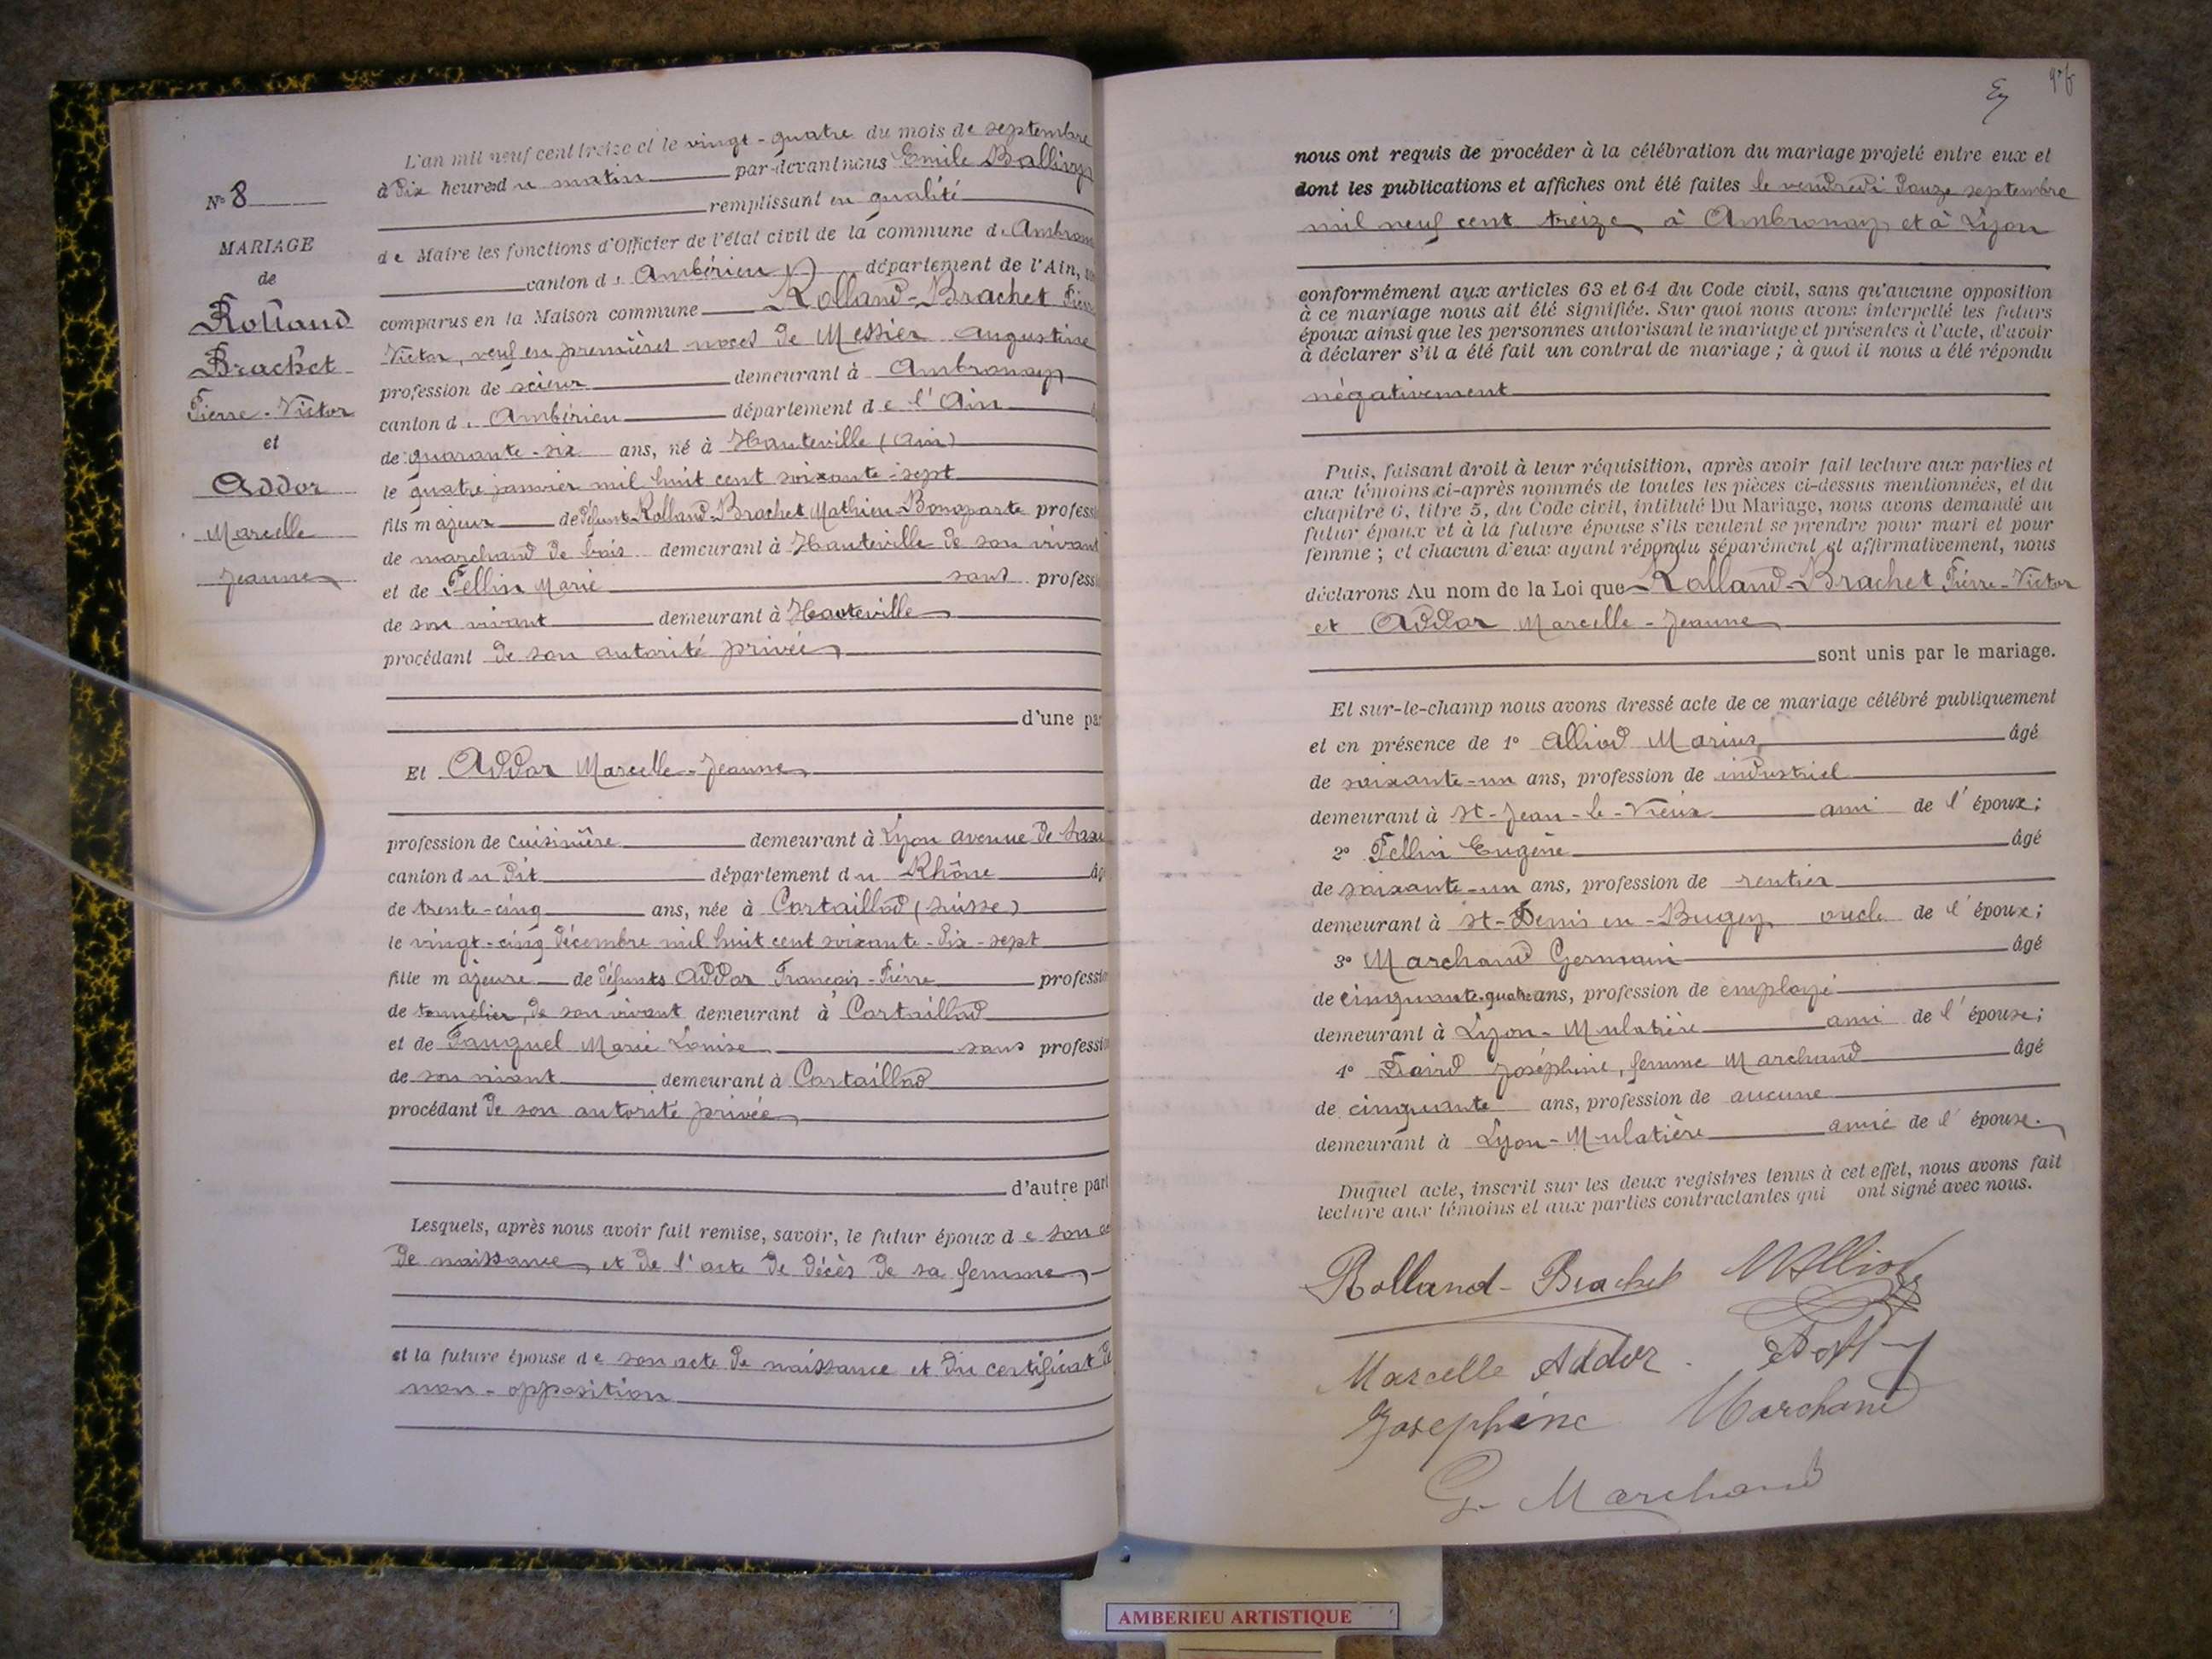 N° 8
MARIAGE
de
Rolland
Brachet
Pierre-Victor
et
Addor
Marcelle
Jeanne
L'an mil neuf cent treize et le vingt-quatre du mois de septembre
à dix heures du matin par-devant nous Emile Ballivy
remplissant en qualité
de Maire les fonctions d'Officier de l'état civil de la commune d'Ambron
canton d' Ambérieu département de l'Ain,
comparus en la Maison commune Rolland-Brachet Pierre
Victor, veuf en premières noces de Messier Augustine
profession de scieur demeurant à Ambronay
canton d' Ambérieu département de l'Ain
de quarante-six ans, né à Hauteville (Ain)
le quatre janvier mil huit cent soixante-sept
fils majeur de défunts Rolland-Brachet Mathieu-Bonaparte profess
de marchand de bois demeurant à Hauteville de son vivant
et de Pellin Marie sans profess
de son vivant demeurant à Hauteville
procédant de son autorité privée
d'une par
Et Addor Marcelle-Jeanne
profession de cuisinière demeurant à Lyon avenue de Saxe
canton du dit département du Rhône âg
de trente-cinq ans, née à Cortaillod (Suisse)
le vingt-cinq décembre mil huit cent soixante-dix-sept
fille majeure de défunts Addor François-Pierre professio
de tonnelier, de son vivant demeurant à Cortaillod
et de Fauguel Marie Louise sans professi
de son vivant demeurant à Cortaillod
procédant de son autorité privée
d'autre part
Lesquels, après nous avoir fait remise, savoir, le futur époux de son ac
de naissance et de l'acte de décès de sa femme
et la future épouse de son acte de naissance et du certificat de
non-opposition
nous ont requis de procéder à la célébration du mariage projeté entre eux et
dont les publications et affiches ont été faites le vendredi douze septembre
mil neuf cent treize à Ambronay et à Lyon
conformément aux articles 63 et 64 du Code civil, sans qu'aucune opposition
à ce mariage nous ait été signifiée. Sur quoi nous avons interpellé les futurs
époux ainsi que les personnes autorisant le mariage et présentes à l'acte, d'avoir
à déclarer s'il a été fait un contrat de mariage ; à quoi il nous a été répondu
négativement
Puis, faisant droit à leur réquisition, après avoir fait lecture aux parties et
aux témoins ci-après nommés de toutes les pièces ci-dessus mentionnées, et du
chapitre 6, titre 5, du Code civil, intitulé Du Mariage, nous avons demandé au
futur époux et à la future épouse s'ils veulent se prendre pour mari et pour
femme ; et chacun d'eux ayant répondu séparément et affirmativement, nous
déclarons Au nom de la Loi que Rolland-Brachet Pierre-Victor
et Addor Marcelle-Jeanne
sont unis par le mariage.
Et sur-le-champ nous avons dressé acte de ce mariage célébré publiquement
et en présence de 1° Alliod Marius âgé
de soixante-un ans, profession de industriel
demeurant à St-Jean-le-Vieux ami de l'époux;
2° Pellin Eugène âgé
de soixante-un ans, profession de rentier
demeurant à St-Denis en-Bugey oncle de l'époux;
3° Marchand Germain âgé
de cinquante-quatre ans, profession de employé
demeurant à Lyon-Mulatière ami de l'épouse;
4° David Joséphine, femme Marchand âgé
de cinquante ans, profession de aucune
demeurant à Lyon-Mulatière amie de l'épouse.
Duquel acte, inscrit sur les deux registres tenus à cet effet, nous avons fait
lecture aux témoins et aux parties contractantes qui ont signé avec nous.
Rolland-Brachet MAlliod
Marcelle Addor
Josephine Marchand
G. Marchand
AMBERIEU ARTISTIQUE